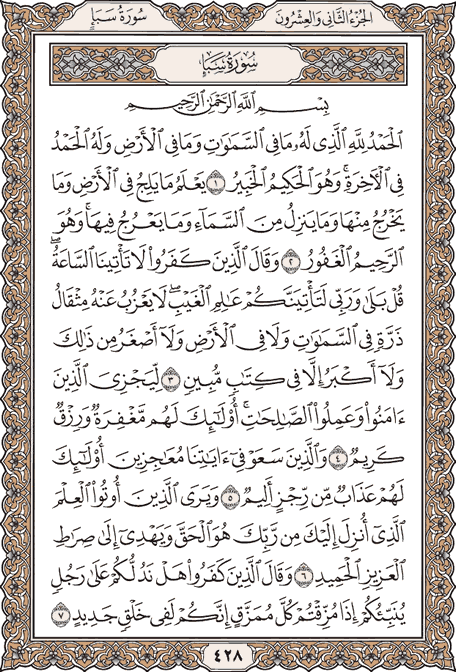 الجزء الثاني والعشرون
سورة سبإ
سورة سبإ
بِسْمِ ٱللَّهِ ٱلرَّحْمَٰنِ ٱلرَّحِيمِ
ٱلْحَمْدُ لِلَّهِ ٱلَّذِى لَهُۥ مَا فِى ٱلسَّمَٰوَٰتِ وَمَا فِى ٱلْأَرْضِ وَلَهُ ٱلْحَمْدُ
فِى ٱلْءَاخِرَةِ ۚ وَهُوَ ٱلْحَكِيمُ ٱلْخَبِيرُ ١ يَعْلَمُ مَا يَلِجُ فِى ٱلْأَرْضِ وَمَا
يَخْرُجُ مِنْهَا وَمَا يَنزِلُ مِنَ ٱلسَّمَآءِ وَمَا يَعْرُجُ فِيهَا ۚ وَهُوَ
ٱلرَّحِيمُ ٱلْغَفُورُ ٢ وَقَالَ ٱلَّذِينَ كَفَرُوا۟ لَا تَأْتِينَا ٱلسَّاعَةُ ۖ
قُلْ بَلَىٰ وَرَبِّى لَتَأْتِيَنَّكُمْ عَٰلِمِ ٱلْغَيْبِ ۖ لَا يَعْزُبُ عَنْهُ مِثْقَالُ
ذَرَّةٍ فِى ٱلسَّمَٰوَٰتِ وَلَا فِى ٱلْأَرْضِ وَلَآ أَصْغَرُ مِن ذَٰلِكَ
وَلَآ أَكْبَرُ إِلَّا فِى كِتَٰبٍ مُّبِينٍ ٣ لِّيَجْزِىَ ٱلَّذِينَ
ءَامَنُوا۟ وَعَمِلُوا۟ ٱلصَّٰلِحَٰتِ ۚ أُو۟لَٰٓئِكَ لَهُم مَّغْفِرَةٌ وَرِزْقٌ
كَرِيمٌ ٤ وَٱلَّذِينَ سَعَوْ فِىٓ ءَايَٰتِنَا مُعَٰجِزِينَ أُو۟لَٰٓئِكَ
لَهُمْ عَذَابٌ مِّن رِّجْزٍ أَلِيمٌ ٥ وَيَرَى ٱلَّذِينَ أُوتُوا۟ ٱلْعِلْمَ
ٱلَّذِىٓ أُنزِلَ إِلَيْكَ مِن رَّبِّكَ هُوَ ٱلْحَقَّ وَيَهْدِىٓ إِلَىٰ صِرَٰطِ
ٱلْعَزِيزِ ٱلْحَمِيدِ ٦ وَقَالَ ٱلَّذِينَ كَفَرُوا۟ هَلْ نَدُلُّكُمْ عَلَىٰ رَجُلٍ
يُنَبِّئُكُمْ إِذَا مُزِّقْتُمْ كُلَّ مُمَزَّقٍ إِنَّكُمْ لَفِى خَلْقٍ جَدِيدٍ ٧
٤٢٨